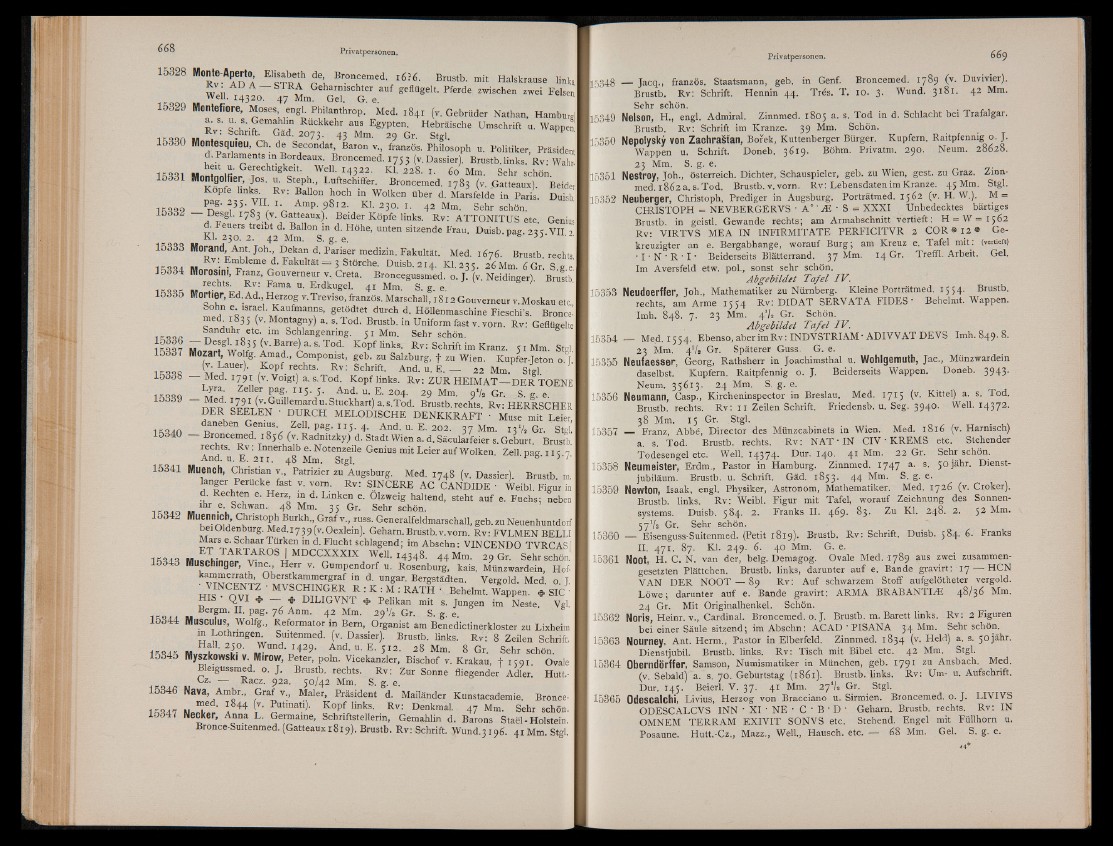 668
Privatpersonen.
15328 Monte-Aperto, Elisabeth de, Broncemed. 16?6. Brustb. mit Halskrause links
Rv: AD A — STRA Geharnischter auf geflügelt. Pferde zwischen zwei Felsen
Well. 14320. 47 Mm. Gel. G. e.
15329 Mentefiore, Moses, engl. Philanthrop, Med. 1841 (v. Gebrüder Nathan, Hamburg)
a. s. u. s. Gemahlin Rückkehr aus Egypten. Hebräische Umschrift u. Wappen.
Rv: Schrift. Gäd. 2073. 43 Mm. 29 Gr. Stgl.
15330 Montesquieu, Ch. de Secondat, Baron v., französ. Philosoph u. Politiker, Präsident
d. Parlaments in Bordeaux, Broncemed. 1753 (v. Dassier). Brustb. links. Rv: Wahr-
heit u. Gerechtigkeit. Well. 14322. Kl. 228. 1. 60 Mm. Sehr schön.
15331 Montgolfier, Jos. u. Steph., Luftschiffer. Broncemed. 1783 (v. Gatteaux). Beider
Köpfe links. Rv: Ballon hoch in Wolken über d. Marsfelde in Paris. Duisb.
pag. 235. VII. 1. Amp. 9812. Kl. 230. 1. 42 Mm. Sehr schön.
15332 — Desgl. 1783 (v. Gatteaux). Beider Köpfe links. Rv: ATTONITUS etc, Genius
d. Feuers treibt d. Ballon in d. Höhe, unten sitzende Frau. Duisb. pag. 235. VII. 2.
Kl. 230. 2. 42 Mm. S. g. e.
15333 Morand, Ant. Joh., Dekan d. Pariser medizin. Fakultät. Med. 1676. Brustb. rechts.
Rv: Embleme d. Fakultät = 3 Störche. Duisb. 214. Kl. 235. 26 Mm. 6 Gr. S. g. e.
15334 Morosini, Franz, Gouverneur v. Creta. Broncegussmed. o. J. (v. Neidinger). Brustb.
rechts. Rv: Fama u. Erdkugel. 41 Mm. S. g. e.
15335 Mortier, Ed. Ad., Herzog v. Treviso, französ. Marschall, 1812 Gouverneur v. Moskau etc.,
Sohn e. israel. Kaufmanns, getödtet durch d. Höllenmaschine Fieschi's. Bronce-
med. 1835 (v. Montagny) a. s. Tod. Brustb. in Uniform fast v. vorn. Rv: Geflügelte
Sanduhr etc. im Schlangenring. 51 Mm. Sehr schön.
15336 — Desgl. 1835 (v. Barre) a. s. Tod. Kopf links. Rv: Schrift im Kranz. 51 Mm. Stgl.
15337 Mozart, Wolfg. Amad., Componist, geb. zu Salzburg, † zu Wien. Kupfer-Jeton o. J.
(v. Lauer). Kopf rechts. Rv: Schrift. And. u. E. — 22 Mm. Stgl.
15338 — Med. 1791 (v. Voigt) a. s. Tod. Kopf links. Rv: ZUR HEIMAT — DER TOENE
Lyra. Zeller pag. 115. 5. And. u. E. 204. 29 Mm. 9½ Gr. S. g. e.
15339 — Med. 1791 (v. Guillemard u. Stuckhart) a. s. Tod. Brustb. rechts. Rv: HERRSCHER
DER SEELEN · DURCH MELODISCHE DENKKRAFT · Muse mit Leier,
daneben Genius. Zell. pag. 115. 4. And. u. E. 202. 37 Mm. 13½ Gr. Stgl.
15340 — Broncemed. 1856 (v. Radnitzky) d. Stadt Wien a. d. Säcularfeier s. Geburt. Brustb.
rechts. Rv: Innerhalb e. Notenzeile Genius mit Leier auf Wolken. Zell. pag. 115. 7.
And. u. E. 211. 48 Mm. Stgl.
15341 Muench, Christian v., Patrizier zu Augsburg. Med. 1748 (v. Dassier). Brustb. m.
langer Perücke fast v. vorn. Rv: SINCERE AC CANDIDE · Weibl. Figur in
d. Rechten e. Herz, in d. Linken e. Ölzweig haltend, steht auf e. Fuchs; neben
ihr e. Schwan. 48 Mm. 35 Gr. Sehr schön.
15342 Muennich, Christoph Burkh., Graf v., russ. Generalfeldmarschall, geb. zu Neuenhuntdorf
bei Oldenburg. Med. 1739 (v. Oexlein). Geharn. Brustb. v. vorn. Rv: FVLMEN BELLI
Mars e. Schaar Türken in d. Flucht schlagend; im Absehn: VINCENDO TVRCAS |
ET TARTAROS | MDCCXXXIX Well. 14348. 44 Mm. 29 Gr. Sehr schön.
15343 Muschinger, Vinc., Herr v. Gumpendorf u. Rosenburg, kais. Münzwardein, Hof-
kammerrath, Oberstkammergraf in d. ungar. Bergstädten. Vergold. Med. o. J.
· VINCENTZ · MVSCHINGER R : K : M : RATH · Behelmt. Wappen. ✤ SIC ·
HIS · QVI ✤ — ✤ DILIGVNT ✤ Pelikan mit s. Jungen im Neste. Vgl.
Bergm. II. pag. 76 Anm. 42 Mm. 29½ Gr. S. g. e.
15344 Musculus, Wolfg., Reformator in Bern, Organist am Benedictinerkloster zu Lixheim
in Lothringen. Suitenmed. (v. Dassier). Brustb. links. Rv: 8 Zeilen Schrift.
Hall. 250. Wund. 1429. And. u. E. 512. 28 Mm. 8 Gr. Sehr schön.
15345 Myszkowski v. Mirow, Peter, poln. Vicekanzler, Bischof v. Krakau, † 1591. Ovale
Bleigussmed. o. J. Brustb. rechts. Rv: Zur Sonne fliegender Adler. Hutt.-
Cz. — Racz. 92a. 50/42 Mm. S. g. e.
15346 Nava, Ambr., Graf v., Maler, Präsident d. Mailänder Kunstacademie. Bronce-
med. 1844 (v. Putinati). Kopf links. Rv: Denkmal. 47 Mm. Sehr schön.
15347 Necker, Anna L. Germaine, Schriftstellerin, Gemahlin d. Barons Staël-Holstein.
Bronce-Suitenmed. (Gatteaux 1819). Brustb. Rv: Schrift. Wund. 3196. 41 Mm. Stgl.
Privatpersonen.
669
15348 — Jacq., französ. Staatsmann, geb. in Genf. Broncemed. 1789 (v. Duvivier).
Brustb. Rv: Schrift. Hennin 44. Trés. T. 10. 3. Wund. 3181. 42 Mm.
Sehr schön.
15349 Nelson, H., engl. Admiral. Zinnmed. 1805 a. s. Tod in d. Schlacht bei Trafalgar.
Brustb. Rv: Schrift im Kranze. 39 Mm. Schön.
15350 Nepolyský von Zachraštan, Bořek, Kuttenberger Bürger. Kupfern. Raitpfennig o. J.
Wappen u. Schrift. Doneb. 3619. Böhm. Privatm. 290. Neum. 28628.
23 Mm. S. g. e.
15351 Nestroy, Joh., österreich. Dichter, Schauspieler, geb. zu Wien, gest. zu Graz. Zinn-
med. 1862 a. s. Tod. Brustb. v. vorn. Rv: Lebensdaten im Kranze. 45 Mm. Stgl.
15352 Neuberger, Christoph, Prediger in Augsburg. Porträtmed. 1562 (v. H. W.). M =
CHRISTOPH = NEVBERGERVS · A° · Æ · S = XXXI Unbedecktes bärtiges
Brustb. in geistl. Gewande rechts; am Armabschnitt vertieft: H = W = 1562
Rv: VIRTVS MEA IN INFIRMITATE PERFICITVR 2 COR ❀ 12 ❀ Ge-
kreuzigter an e. Bergabhange, worauf Burg; am Kreuz e. Tafel mit: (vertieft)
· I · N · R · I · Beiderseits Blätterrand. 37 Mm. 14 Gr. Treffl. Arbeit. Gel.
Im Aversfeld etw. pol., sonst sehr schön.
Abgebildet Tafel IV.
15353 Neudoerffer, Joh., Mathematiker zu Nürnberg. Kleine Porträtmed. 1554. Brustb.
rechts, am Arme 1554 Rv: DIDAT SERVATA FIDES · Behelmt. Wappen.
Imh. 848. 7. 23 Mm. 4½ Gr. Schön.
Abgebildet Tafel IV.
15354 — Med. 1554. Ebenso, aber im Rv: INDVSTRIAM · ADIVVAT DEVS Imh. 849. 8.
23 Mm. 4½ Gr. Späterer Guss. G. e.
15355 Neufaesser, Georg, Rathsherr in Joachimsthal u. Wohlgemuth, Jac., Münzwardein
daselbst. Kupfern. Raitpfennig o. J. Beiderseits Wappen. Doneb. 3943.
Neum. 35613. 24 Mm. S. g. e.
15356 Neumann, Casp., Kircheninspector in Breslau. Med. 1715 (v. Kittel) a. s. Tod.
Brustb. rechts. Rv: 11 Zeilen Schrift. Friedensb. u. Seg. 3940. Well. 14372.
38 Mm. 15 Gr. Stgl.
15357 — Franz, Abbé, Director des Münzcabinets in Wien. Med. 1816 (v. Harnisch)
a. s. Tod. Brustb. rechts. Rv: NAT · IN CIV · KREMS etc. Stehender
Todesengel etc. Well. 14374. Dur. 140. 41 Mm. 22 Gr. Sehr schön.
15358 Neumeister, Erdm., Pastor in Hamburg. Zinnmed. 1747 a. s. 50 jähr. Dienst-
jubiläum. Brustb. u. Schrift. Gäd. 1853. 44 Mm. S. g. e.
15359 Newton, Isaak, engl. Physiker, Astronom, Mathematiker. Med. 1726 (v. Croker).
Brustb. links. Rv: Weibl. Figur mit Tafel, worauf Zeichnung des Sonnen-
systems. Duisb. 584. 2. Franks II. 469. 83. Zu Kl. 248. 2. 52 Mm.
57½ Gr. Sehr schön.
15360 — Eisenguss-Suitenmed. (Petit 1819). Brustb. Rv: Schrift. Duisb. 584. 6. Franks
II. 471. 87. Kl. 249. 6. 40 Mm. G. e.
15361 Noot, H. C. N. van der, belg. Demagog. Ovale Med. 1789 aus zwei zusammen-
gesetzten Plättchen. Brustb. links, darunter auf e. Bande gravirt: 17 — HCN
VAN DER NOOT — 89 Rv: Auf schwarzem Stoff aufgelötheter vergold.
Löwe; darunter auf e. Bande gravirt: ARMA BRABANTIÆ 48/36 Mm.
24 Gr. Mit Originalhenkel. Schön.
15362 Noris, Heinr. v., Cardinal. Broncemed. o. J. Brustb. m. Barett links. Rv: 2 Figuren
bei einer Säule sitzend; im Absehn: ACAD · PISANA 34 Mm. Sehr schön.
15363 Nourney, Ant. Herm., Pastor in Elberfeld. Zinnmed. 1834 (v. Held) a. s. 50 jähr.
Dienstjubil. Brustb. links. Rv: Tisch mit Bibel etc. 42 Mm. Stgl.
15364 Oberndörffer, Samson, Numismatiker in München, geb. 1791 zu Ansbach. Med.
(v. Sebald) a. s. 70. Geburtstag (1861). Brustb. links. Rv: Um- u. Aufschrift.
Dur. 145. Beierl. V. 37. 41 Mm. 27½ Gr. Stgl.
15365 Odescalchi, Livius, Herzog von Bracciano u. Sirmien. Broncemed. o. J. LIVIVS
ODESCALCVS INN · XI · NE · C · B · D · Geharn. Brustb. rechts. Rv: IN
OMNEM TERRAM EXIVIT SONVS etc. Stehend. Engel mit Füllhorn u.
Posaune. Hutt.-Cz., Mazz., Well., Hausch. etc. — 68 Mm. Gel. S. g. e.